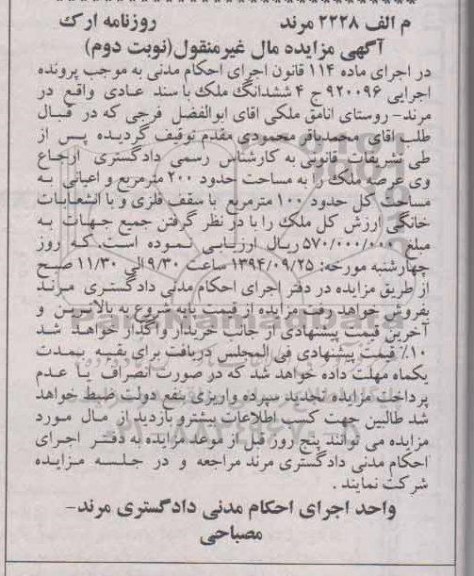 م الف ۲۲۲۸ مرند روزنامه ارک
آگهی مزایده مال غیرمنقول(نوبت دوم)
در اجرای ماده ۱۱۴ قانون اجرای احکام مدنی به موجب پرونده
اجرایی ۹۲۰۰۹۶ ج ۴ ششدانگ ملک با سند عادی واقع در
مرند- روستای انامق ملکی اقای ابوالفضل فرجی که در قبال
طلب اقای محمدباقر محمودی مقدم توقیف گردیده پس از
طی تشریفات قانونی به کارشناس رسمی دادگستری ارجاع
وی عرصه ملک را به مساحت حدود ۲۰۰ مترمربع و اعیانی به
مساحت کل حدود ۱۰۰ مترمربع با سقف فلزی و با انشعابات
خانگی ارزش کل ملک را با در نظر گرفتن جمیع جهات به
مبلغ ۵۷۰/۰۰۰/۰۰۰ ریال ارزیابی نموده است. که روز
چهارشنبه مورخه: ۱۳۹۴/۰۹/۲۵ ساعت ۹/۳۰ الی ۱۱/۳۰ صبح
از طریق مزایده در دفتر اجرای احکام مدنی دادگستری مرند
بفروش خواهد رفت مزایده از قیمت پایه شروع به بالاترین و
آخرین قیمت پیشنهادی از جانب خریدار واگذار خواهد شد
۱۰٪ قیمت پیشنهادی فی المجلس دریافت برای بقیه بمدت
یکماه مهلت داده خواهد شد که در صورت انصراف یا عدم
پرداخت مزایده تجدید سپرده واریزی بنفع دولت ضبط خواهد
شد طالبین جهت کسب اطلاعات بیشترو بازدید از مال مورد
مزایده می توانند پنج روز قبل از موعد مزایده به دفتر اجرای
احکام مدنی دادگستری مرند مراجعه و در جلسه مزایده
شرکت نمایند .
واحد اجرای احکام مدنی دادگستری مرند-
مصباحی